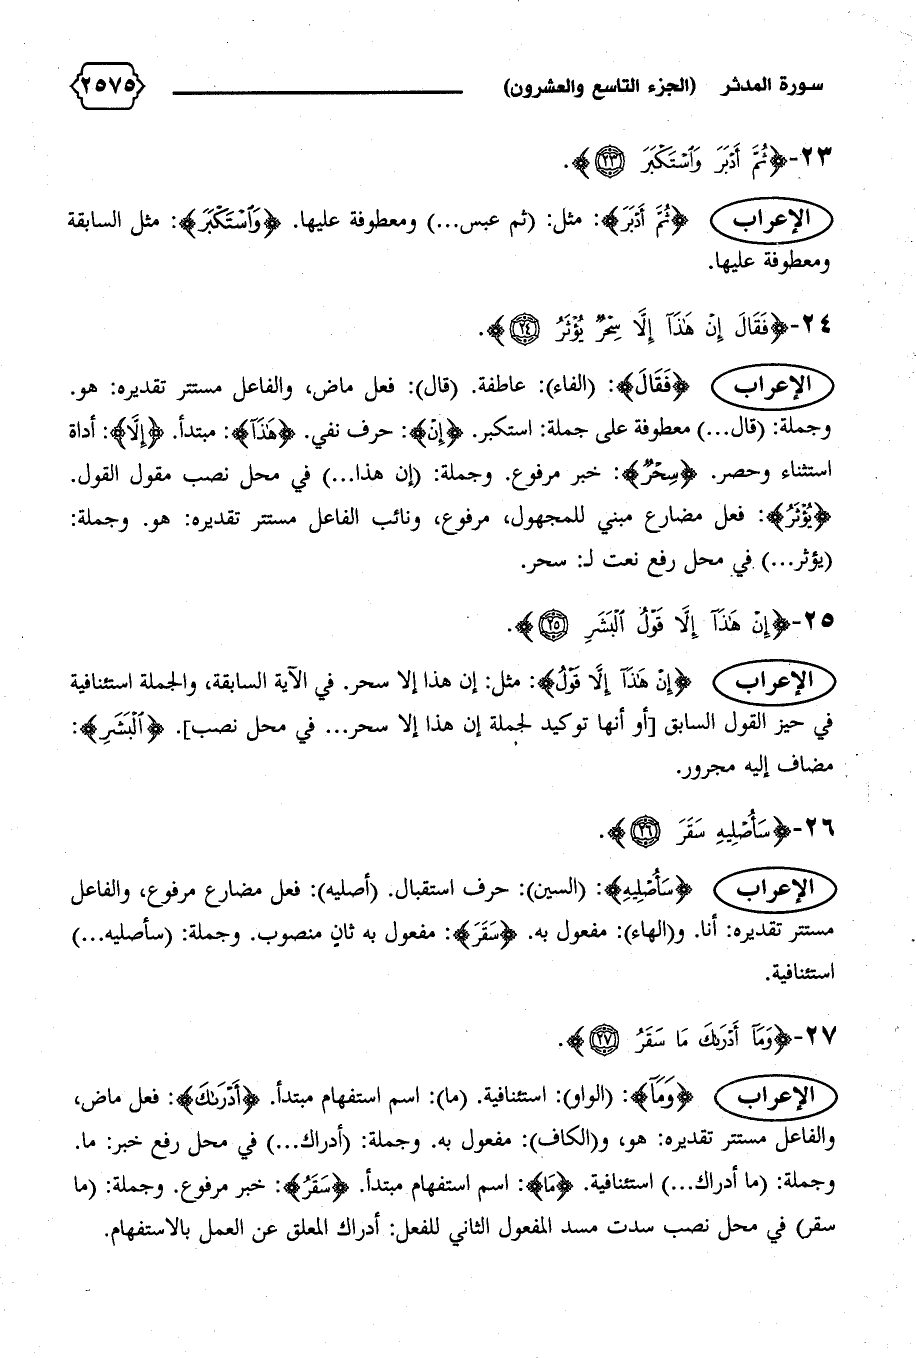 سورة المدثر (الجزء التاسع والعشرون) ٢٥٧٥
٢٣-﴿ثُمَّ أَدْبَرَ وَاسْتَكْبَرَ ٢٣﴾.
الإعراب ﴿ثُمَّ أَدْبَرَ﴾: مثل: (ثم عبس...) ومعطوفة عليها. ﴿وَاسْتَكْبَرَ﴾: مثل السابقة
ومعطوفة عليها.
٢٤-﴿فَقَالَ إِنْ هَٰذَآ إِلَّا سِحْرٌ يُؤْثَرُ ٢٤﴾.
الإعراب ﴿فَقَالَ﴾: (الفاء): عاطفة. (قال): فعل ماض، والفاعل مستتر تقديره: هو.
وجملة: (قال...) معطوفة على جملة: استكبر. ﴿إِنْ﴾: حرف نفي. ﴿هَٰذَآ﴾: مبتدأ. ﴿إِلَّا﴾: أداة
استثناء وحصر. ﴿سِحْرٌ﴾: خبر مرفوع. وجملة: (إن هذا...) في محل نصب مقول القول.
﴿يُؤْثَرُ﴾: فعل مضارع مبني للمجهول، مرفوع، ونائب الفاعل مستتر تقديره: هو. وجملة:
(يؤثر...) في محل رفع نعت لـ: سحر.
٢٥-﴿إِنْ هَٰذَآ إِلَّا قَوْلُ الْبَشَرِ ٢٥﴾.
الإعراب ﴿إِنْ هَٰذَآ إِلَّا قَوْلُ﴾: مثل: إن هذا إلا سحر. في الآية السابقة، والجملة استئنافية
في حيز القول السابق [أو أنها توكيد لجملة إن هذا إلا سحر... في محل نصب]. ﴿الْبَشَرِ﴾:
مضاف إليه مجرور.
٢٦-﴿سَأُصْلِيهِ سَقَرَ ٢٦﴾.
الإعراب ﴿سَأُصْلِيهِ﴾: (السين): حرف استقبال. (أصليه): فعل مضارع مرفوع، والفاعل
مستتر تقديره: أنا. و(الهاء): مفعول به. ﴿سَقَرَ﴾: مفعول به ثانٍ منصوب. وجملة: (سأصليه...)
استئنافية.
٢٧-﴿وَمَآ أَدْرَىٰكَ مَا سَقَرُ ٢٧﴾.
الإعراب ﴿وَمَآ﴾: (الواو): استئنافية. (ما): اسم استفهام مبتدأ. ﴿أَدْرَىٰكَ﴾: فعل ماض،
والفاعل مستتر تقديره: هو، و(الكاف): مفعول به. وجملة: (أدراك...) في محل رفع خبر: ما.
وجملة: (ما أدراك...) استئنافية. ﴿مَا﴾: اسم استفهام مبتدأ. ﴿سَقَرُ﴾: خبر مرفوع. وجملة: (ما
سقر) في محل نصب سدت مسد المفعول الثاني للفعل: أدراك المعلق عن العمل بالاستفهام.